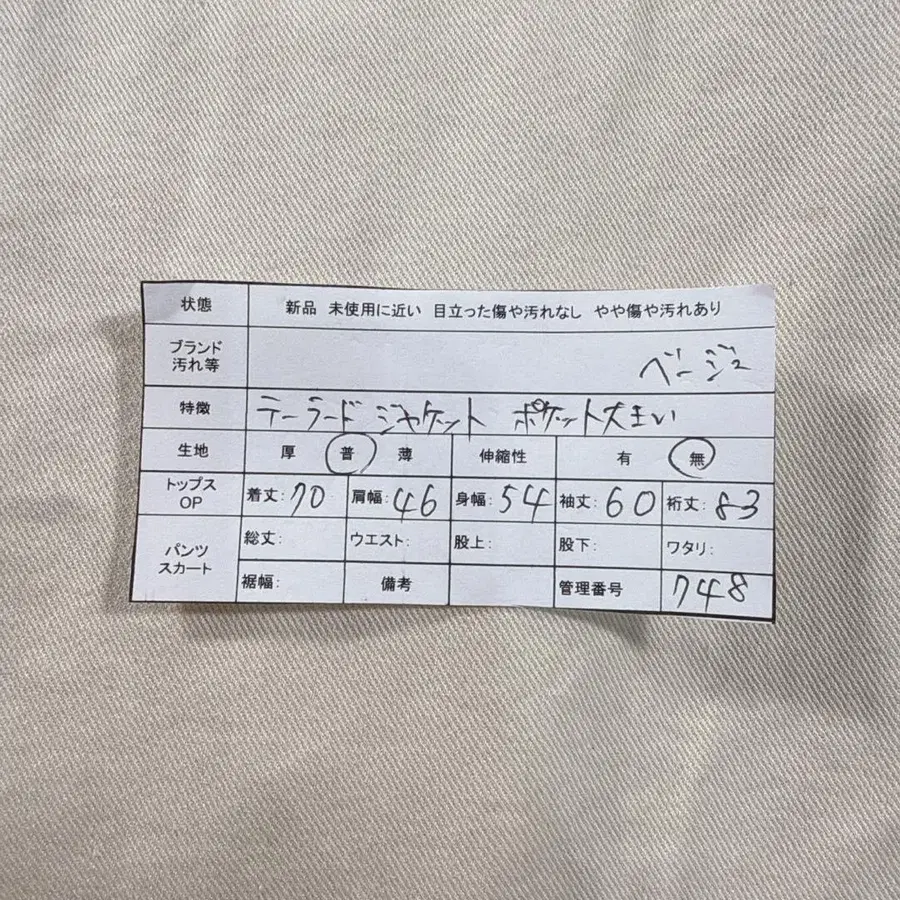 状態 新品 未使用に近い 目立った傷や汚れなし やや傷や汚れあり
ブランド
汚れ等 ベージュ
特徴 テーラードジャケット ポケット大きい
生地 厚 普 薄 伸縮性 有 無
トップス
OP 着丈:70 肩幅:46 身幅:54 袖丈:60 裄丈:83
パンツ
スカート 総丈: ウエスト: 股上: 股下: ワタリ:
裾幅: 備考 管理番号 748